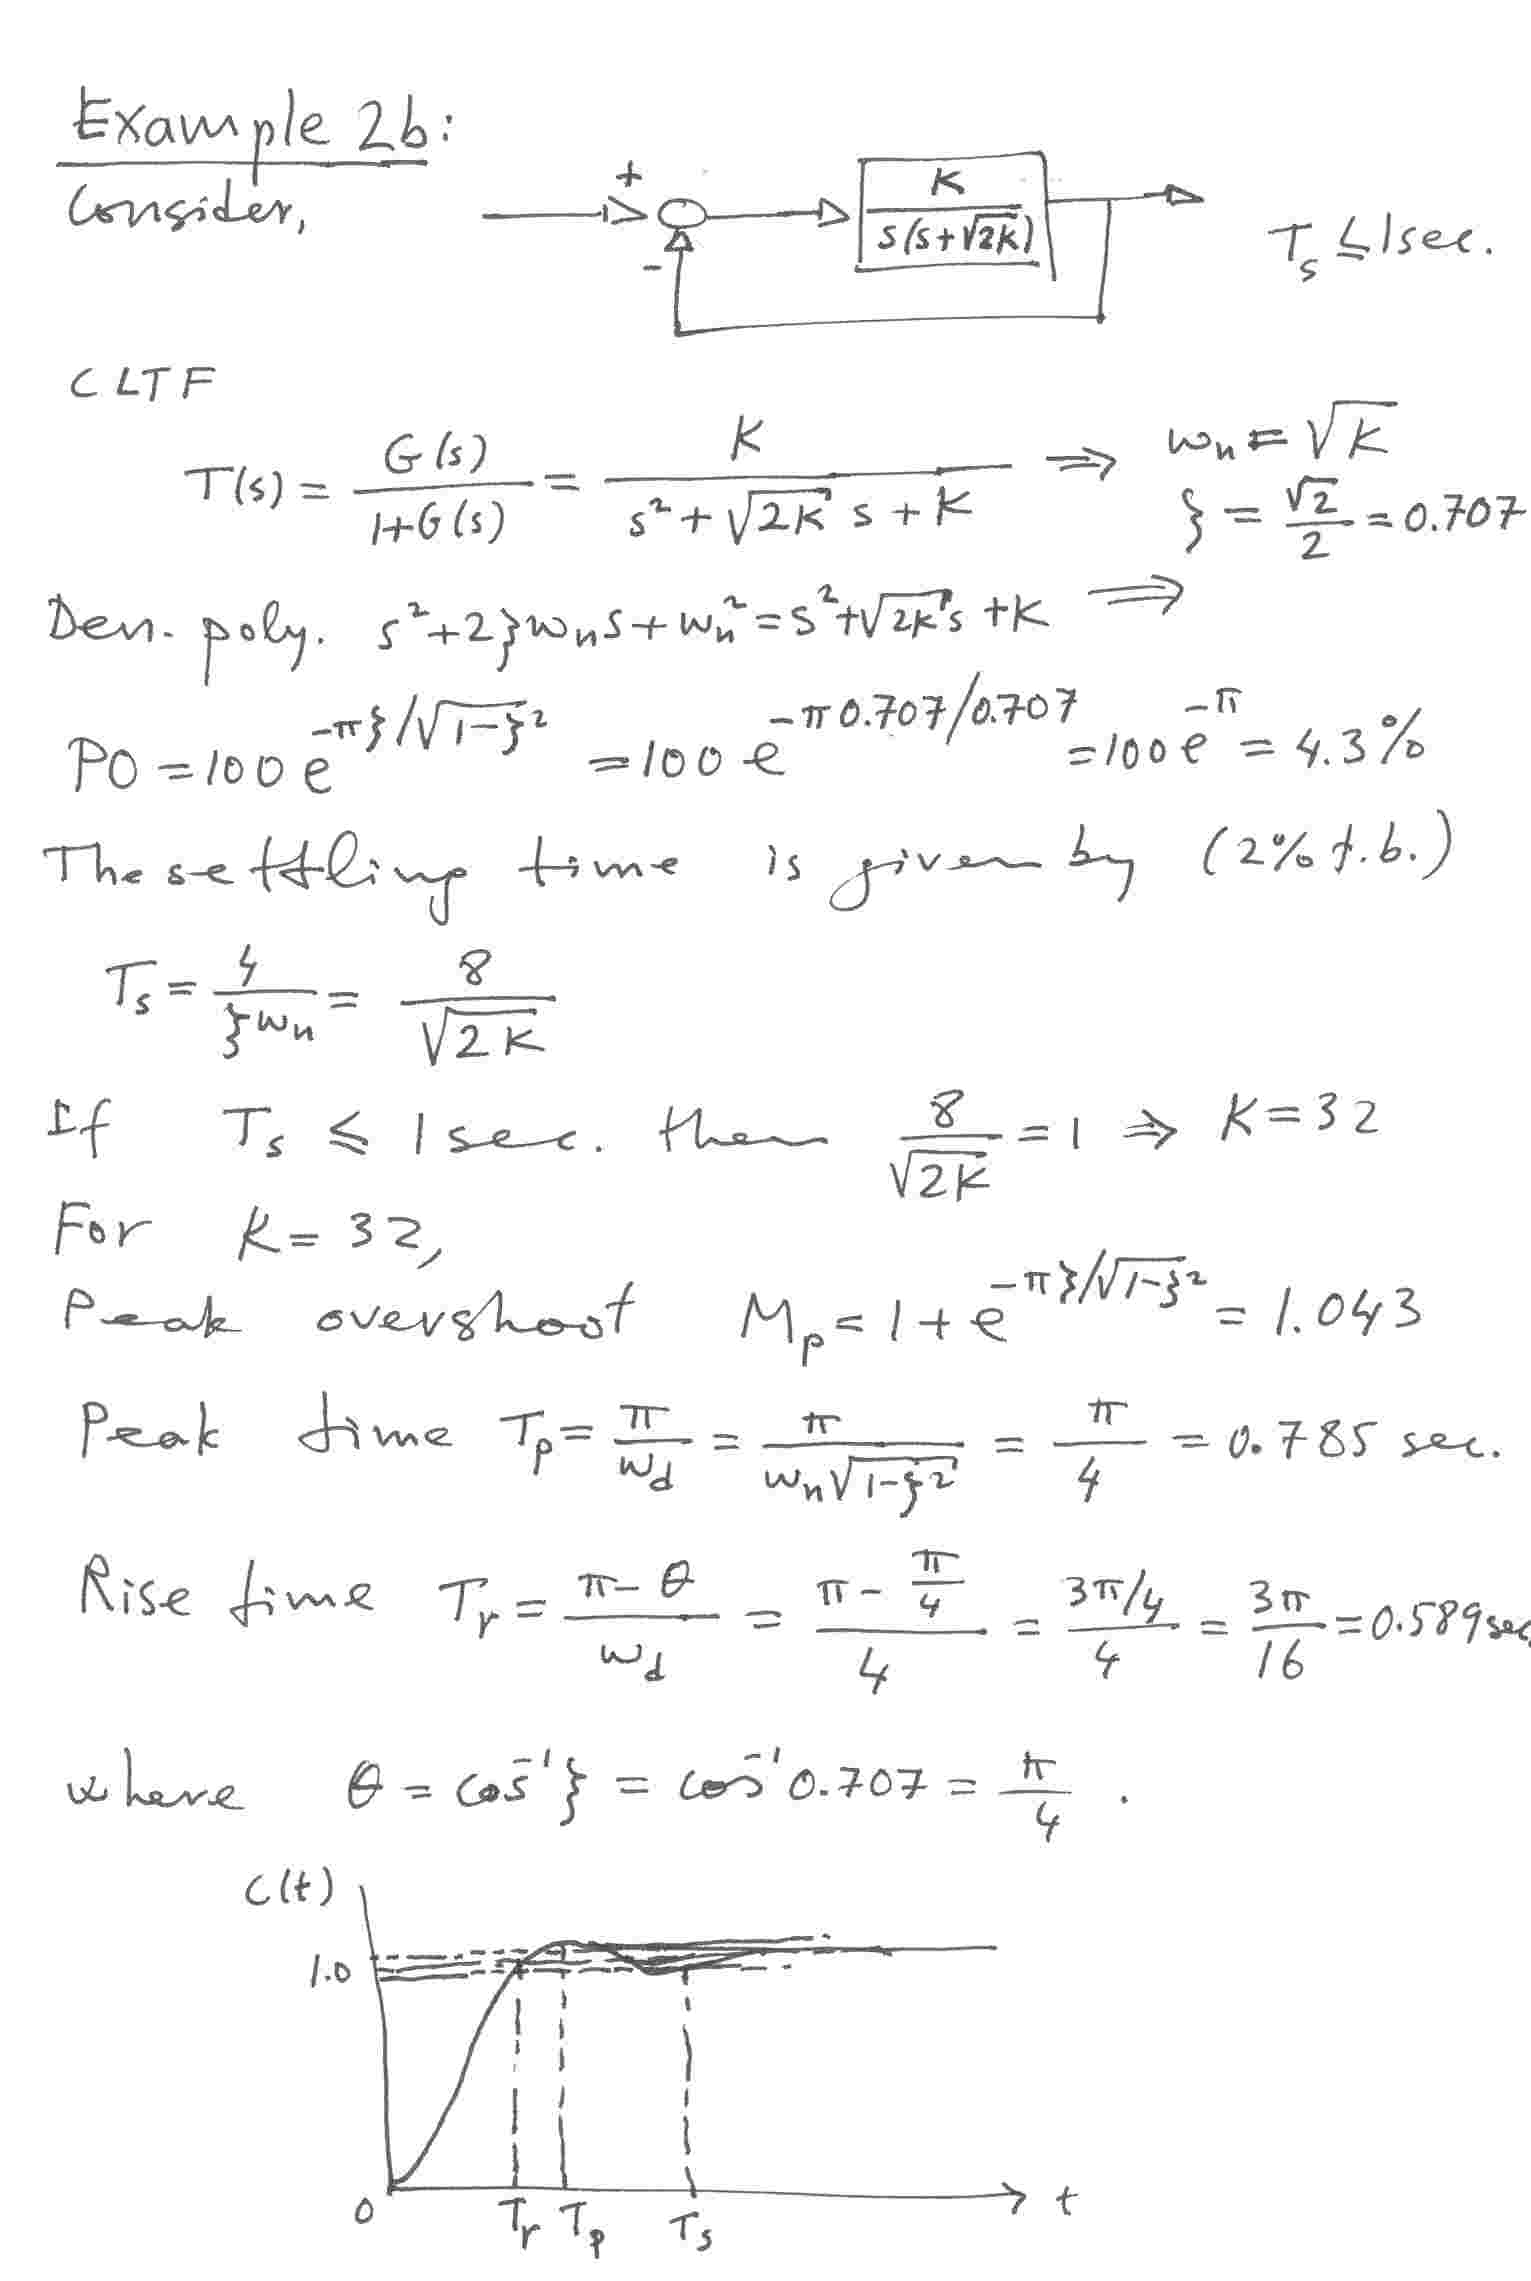 Example 2b:
Consider,
+
-
K
s(s+√2K)
Ts ≤ 1 sec.
CLTF
T(s) = G(s) / 1+G(s) = K / s² + √2K s + K ⇒ wn = √K
ζ = √2 / 2 = 0.707
Den. poly. s² + 2ζwns + wn² = s² + √2K s + K ⇒
PO = 100 e^-πζ/√1-ζ² = 100 e^-π0.707/0.707 = 100 e^-π = 4.3%
The settling time is given by (2% t.b.)
Ts = 4 / ζwn = 8 / √2K
If Ts ≤ 1 sec. then 8 / √2K = 1 ⇒ K = 32
For K = 32,
Peak overshoot Mp = 1 + e^-πζ/√1-ζ² = 1.043
Peak time Tp = π / wd = π / wn√1-ζ² = π / 4 = 0.785 sec.
Rise time Tr = π - θ / wd = π - π/4 / 4 = 3π/4 / 4 = 3π / 16 = 0.589 sec.
where θ = cos⁻¹ζ = cos⁻¹0.707 = π / 4 .
C(t)
1.0
0 Tr Tp Ts t